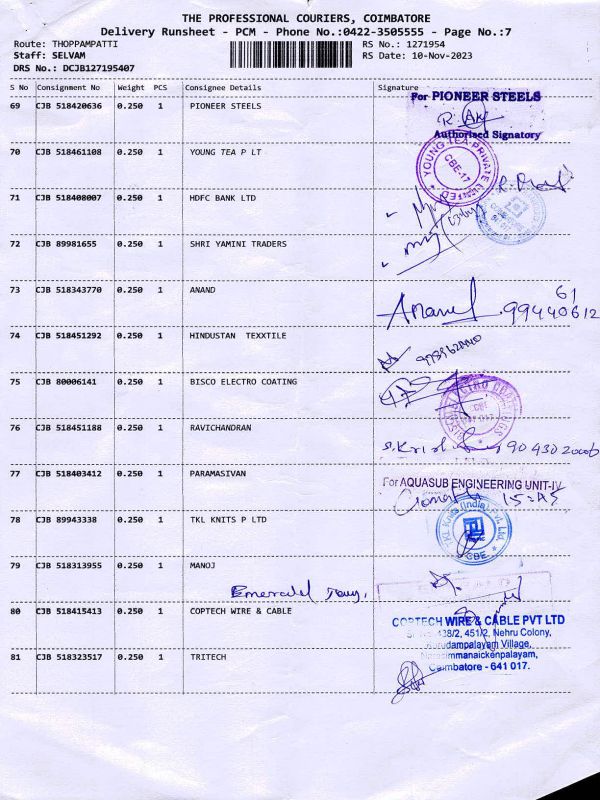 THE PROFESSIONAL COURIERS, COIMBATORE
Delivery Runsheet - PCM - Phone No.:0422-3505555 - Page No.:7
Route: THOPPAMPATTI RS No.: 1271954
Staff: SELVAM RS Date: 10-Nov-2023
DRS No.: DCJB127195407
S No Consignment No Weight PCS Consignee Details Signature
For PIONEER STEELS
69 CJB 518420636 0.250 1 PIONEER STEELS
Authorised Signatory
70 CJB 518461108 0.250 1 YOUNG TEA P LT
YOUNG TEA PRIVATE LIMITED
CBE-17
71 CJB 518408007 0.250 1 HDFC BANK LTD
72 CJB 89981655 0.250 1 SHRI YAMINI TRADERS
73 CJB 518343770 0.250 1 ANAND
61
Anand 99440612
74 CJB 518451292 0.250 1 HINDUSTAN TEXXTILE
75 CJB 80006141 0.250 1 BISCO ELECTRO COATING
76 CJB 518451188 0.250 1 RAVICHANDRAN
77 CJB 518403412 0.250 1 PARAMASIVAN
For AQUASUB ENGINEERING UNIT-IV
78 CJB 89943338 0.250 1 TKL KNITS P LTD
TKL Knits (India) Pvt. Ltd.
CBE
79 CJB 518313955 0.250 1 MANOJ
Emerald
80 CJB 518415413 0.250 1 COPTECH WIRE & CABLE
COPTECH WIRE & CABLE PVT LTD
438/2, 451/2, Nehru Colony,
Village,
Coimbatore - 641 017.
81 CJB 518323517 0.250 1 TRITECH